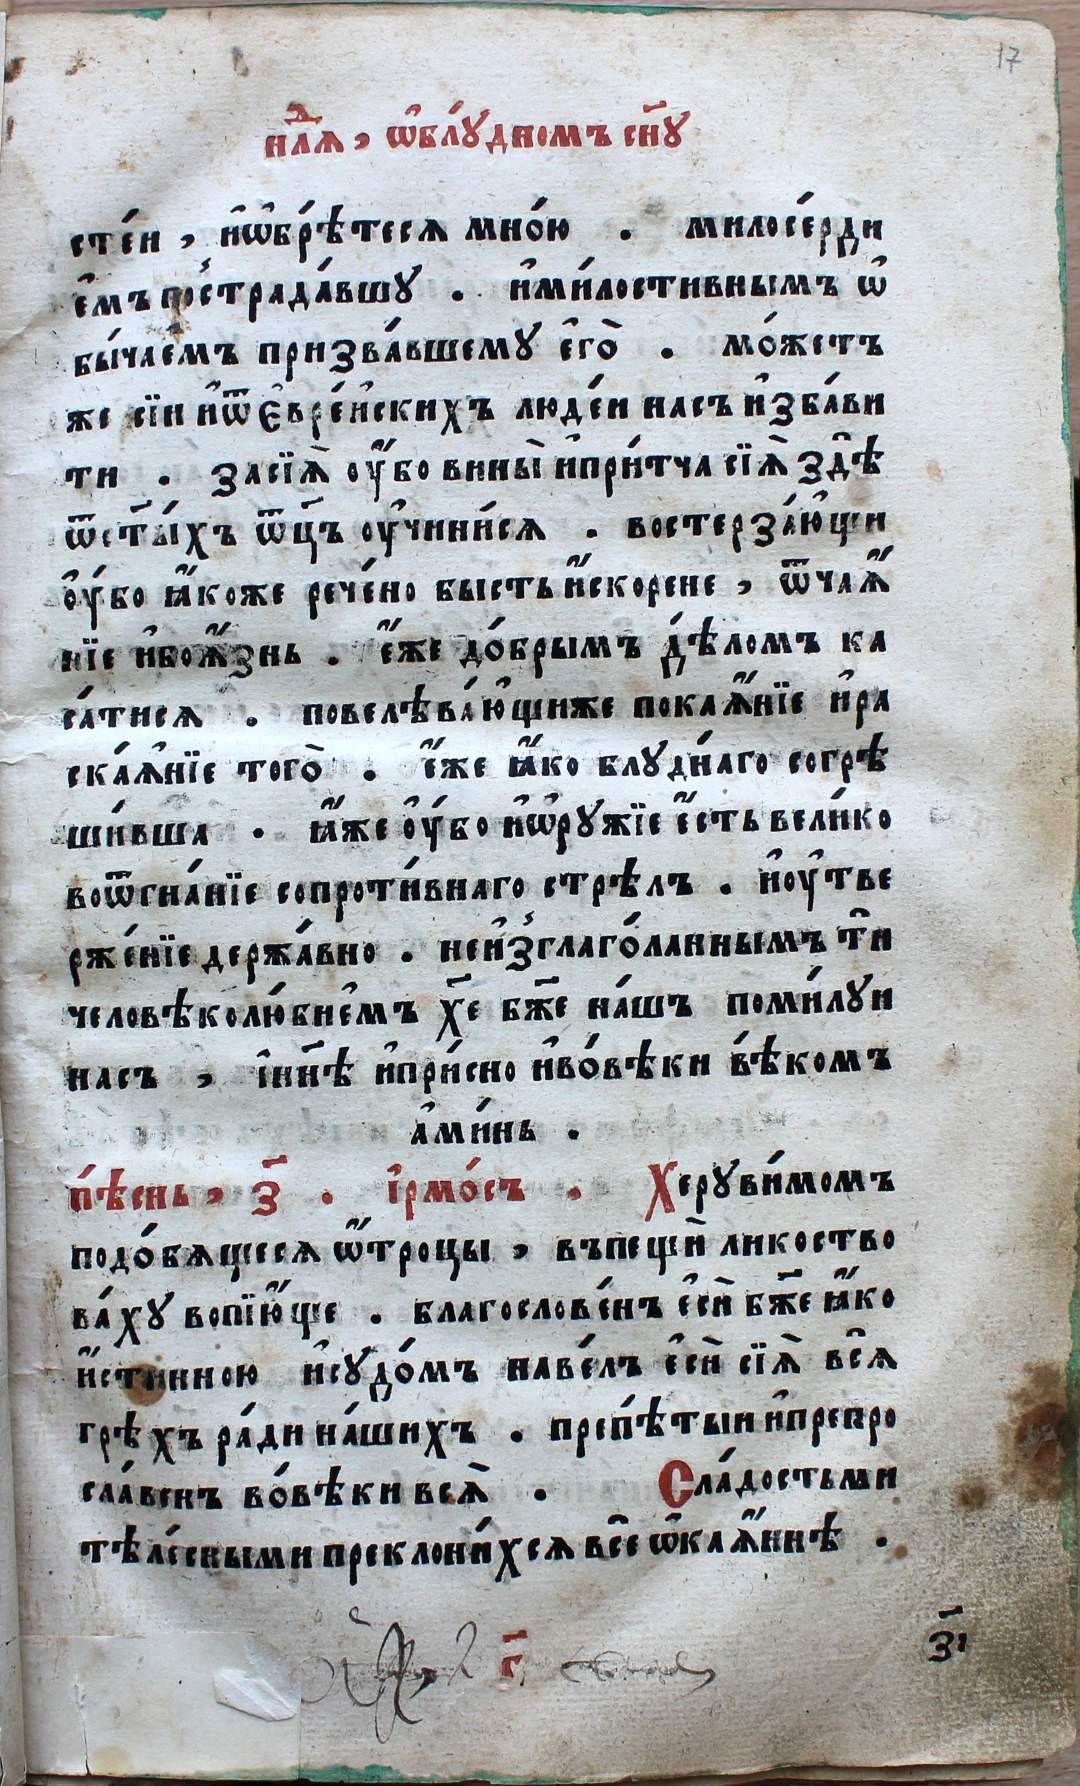 17
нлⷣѧ, ѡ҆блꙋ́дномъ сн҃ꙋ
сте́и, и҆ѡ҆брѣ́тесѧ мно́ю . милосе́рди
е҆мъ пострада́вшꙋ . и҆ми́лостивнымъ ѡ҆
бы́чаемъ призва́вшемꙋ є҆го̀ . мо́жетъ
же сїи и҆ѿ є҆вре́искихъ люде́и насъ и҆зба́ви
ти . засїѧ̀ оу҆́бо вины̀ и҆при́тча сїѧ̀ здѣ̑
ѿст҃ы́хъ ѿц҃ъ оу҆чини́сѧ . востерза́ю҆щи
оу҆́бо ꙗ҆́коже рече́но бысть и҆́скорене, ѿчаѧ҆́
нїе и҆боѧ҆́знь . е҆́же до́брымъ дѣ́ломъ ка
са́тисѧ . повелѣва́ю҆щиже покаѧ҆́нїе и҆ра
ска́ѧ҆нїе того̀ . е҆́же ꙗ҆́ко блꙋ́днаго согрѣ
ши́вша . ꙗ҆́же оу҆́бо и҆ѡ҆рꙋжїе е҆́сть вели́ко
воѿгна́нїе сопроти́внаго стрѣлъ . и҆оу҆тве
рже́нїе держа́вно . неи҆зглаго́ланнымъ ти̑
человѣколю́бие҆мъ хе҃ бж҃е на́шъ поми́лꙋи
насъ, і҆нн҃ѣ и҆при́сно и҆во́вѣки вѣ́комъ
а҆ми́нь .
пѣ́снь, з҃ . і҆рмо́съ . Херꙋви́момъ
подо́бѧщесѧ ѡ҆́троцы, въпещѝ ликоство
ва́хꙋ вопїю҆́ще . благослове́нъ є҆сѝ бж҃е ꙗ҆́ко
и҆́стинною и҆сꙋдо́мъ наве́лъ є҆сѝ сїѧ̀ всѧ̑
грѣхъ ра́ди на́шихъ . препѣ́тыи и҆препро
сла́венъ во́вѣки всѧ̀ . Сла́достьми
тѣле́сными преклони́хсѧ все̑ ѡ҆каѧ҆́ннѣ .
г҃
з҃і